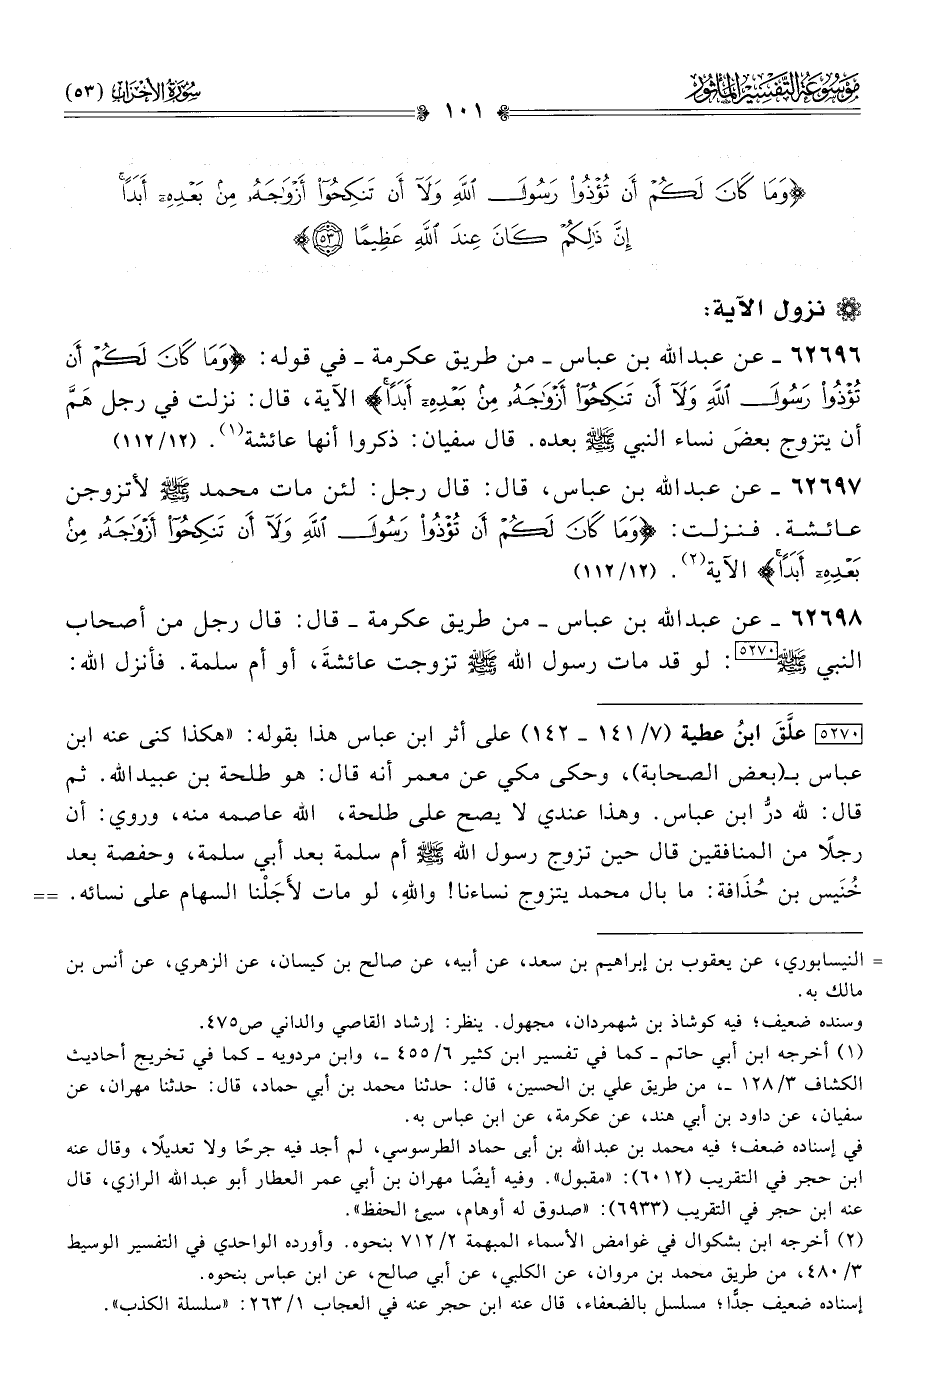 موسوعة التفسير المأثور
سورة الأحزاب (٥٣)
١٠١
﴿وَمَا كَانَ لَكُمْ أَن تُؤْذُوا۟ رَسُولَ ٱللَّهِ وَلَآ أَن تَنكِحُوٓا۟ أَزْوَٰجَهُۥ مِنۢ بَعْدِهِۦٓ أَبَدًا ۚ
إِنَّ ذَٰلِكُمْ كَانَ عِندَ ٱللَّهِ عَظِيمًا ۝٥٣﴾
نزول الآية:
٦٢٦٩٦ ـ عن عبدالله بن عباس ـ من طريق عكرمة ـ في قوله: ﴿وَمَا كَانَ لَكُمْ أَن
تُؤْذُوا۟ رَسُولَ ٱللَّهِ وَلَآ أَن تَنكِحُوٓا۟ أَزْوَٰجَهُۥ مِنۢ بَعْدِهِۦٓ أَبَدًا ۚ﴾ الآية، قال: نزلت في رجل هَمَّ
أن يتزوج بعضَ نساء النبي ﷺ بعده. قال سفيان: ذكروا أنها عائشة(١). (١٢/ ١١٢)
٦٢٦٩٧ ـ عن عبدالله بن عباس، قال: قال رجل: لئن مات محمد ﷺ لأتزوجن
عائشة. فنزلت: ﴿وَمَا كَانَ لَكُمْ أَن تُؤْذُوا۟ رَسُولَ ٱللَّهِ وَلَآ أَن تَنكِحُوٓا۟ أَزْوَٰجَهُۥ مِنۢ
بَعْدِهِۦٓ أَبَدًا ۚ﴾ الآية(٢). (١٢/ ١١٢)
٦٢٦٩٨ ـ عن عبدالله بن عباس ـ من طريق عكرمة ـ قال: قال رجل من أصحاب
النبي ﷺ[٥٢٧٠]: لو قد مات رسول الله ﷺ تزوجت عائشةَ، أو أم سلمة. فأنزل الله:
[٥٢٧٠] علَّقَ ابنُ عطية (٧/ ١٤١ ـ ١٤٢) على أثر ابن عباس هذا بقوله: «هكذا كنى عنه ابن
عباس بـ(بعض الصحابة)، وحكى مكي عن معمر أنه قال: هو طلحة بن عبيدالله. ثم
قال: لله درُّ ابن عباس. وهذا عندي لا يصح على طلحة، الله عاصمه منه، وروي: أن
رجلًا من المنافقين قال حين تزوج رسول الله ﷺ أم سلمة بعد أبي سلمة، وحفصة بعد
خُنَيس بن حُذَافة: ما بال محمد يتزوج نساءنا! واللهِ، لو مات لأَجَلْنا السهام على نسائه. ==
= النيسابوري، عن يعقوب بن إبراهيم بن سعد، عن أبيه، عن صالح بن كيسان، عن الزهري، عن أنس بن
مالك به.
وسنده ضعيف؛ فيه كوشاذ بن شهمردان، مجهول. ينظر: إرشاد القاصي والداني ص٤٧٥.
(١) أخرجه ابن أبي حاتم ـ كما في تفسير ابن كثير ٦/ ٤٥٥ ـ، وابن مردويه ـ كما في تخريج أحاديث
الكشاف ٣/ ١٢٨ ـ، من طريق علي بن الحسين، قال: حدثنا محمد بن أبي حماد، قال: حدثنا مهران، عن
سفيان، عن داود بن أبي هند، عن عكرمة، عن ابن عباس به.
في إسناده ضعف؛ فيه محمد بن عبدالله بن أبى حماد الطرسوسي، لم أجد فيه جرحًا ولا تعديلًا، وقال عنه
ابن حجر في التقريب (٦٠١٢): «مقبول». وفيه أيضًا مهران بن أبي عمر العطار أبو عبدالله الرازي، قال
عنه ابن حجر في التقريب (٦٩٣٣): «صدوق له أوهام، سيئ الحفظ».
(٢) أخرجه ابن بشكوال في غوامض الأسماء المبهمة ٢/ ٧١٢ بنحوه. وأورده الواحدي في التفسير الوسيط
٣/ ٤٨٠، من طريق محمد بن مروان، عن الكلبي، عن أبي صالح، عن ابن عباس بنحوه.
إسناده ضعيف جدًّا؛ مسلسل بالضعفاء، قال عنه ابن حجر عنه في العجاب ١/ ٢٦٣: «سلسلة الكذب».